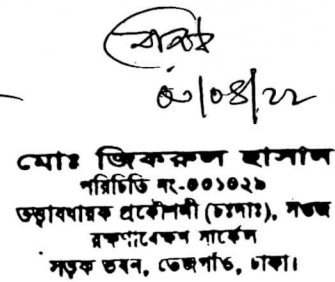 ৩০/০৪/২২
মোঃ জিকরুল হাসান
পরিচিতি নং-০০১০২৯
তত্ত্বাবধায়ক প্রকৌশলী (চঃদাঃ), সওজ
রক্ষণাবেক্ষণ সার্কেল
সড়ক ভবন, তেজগাঁও, ঢাকা।